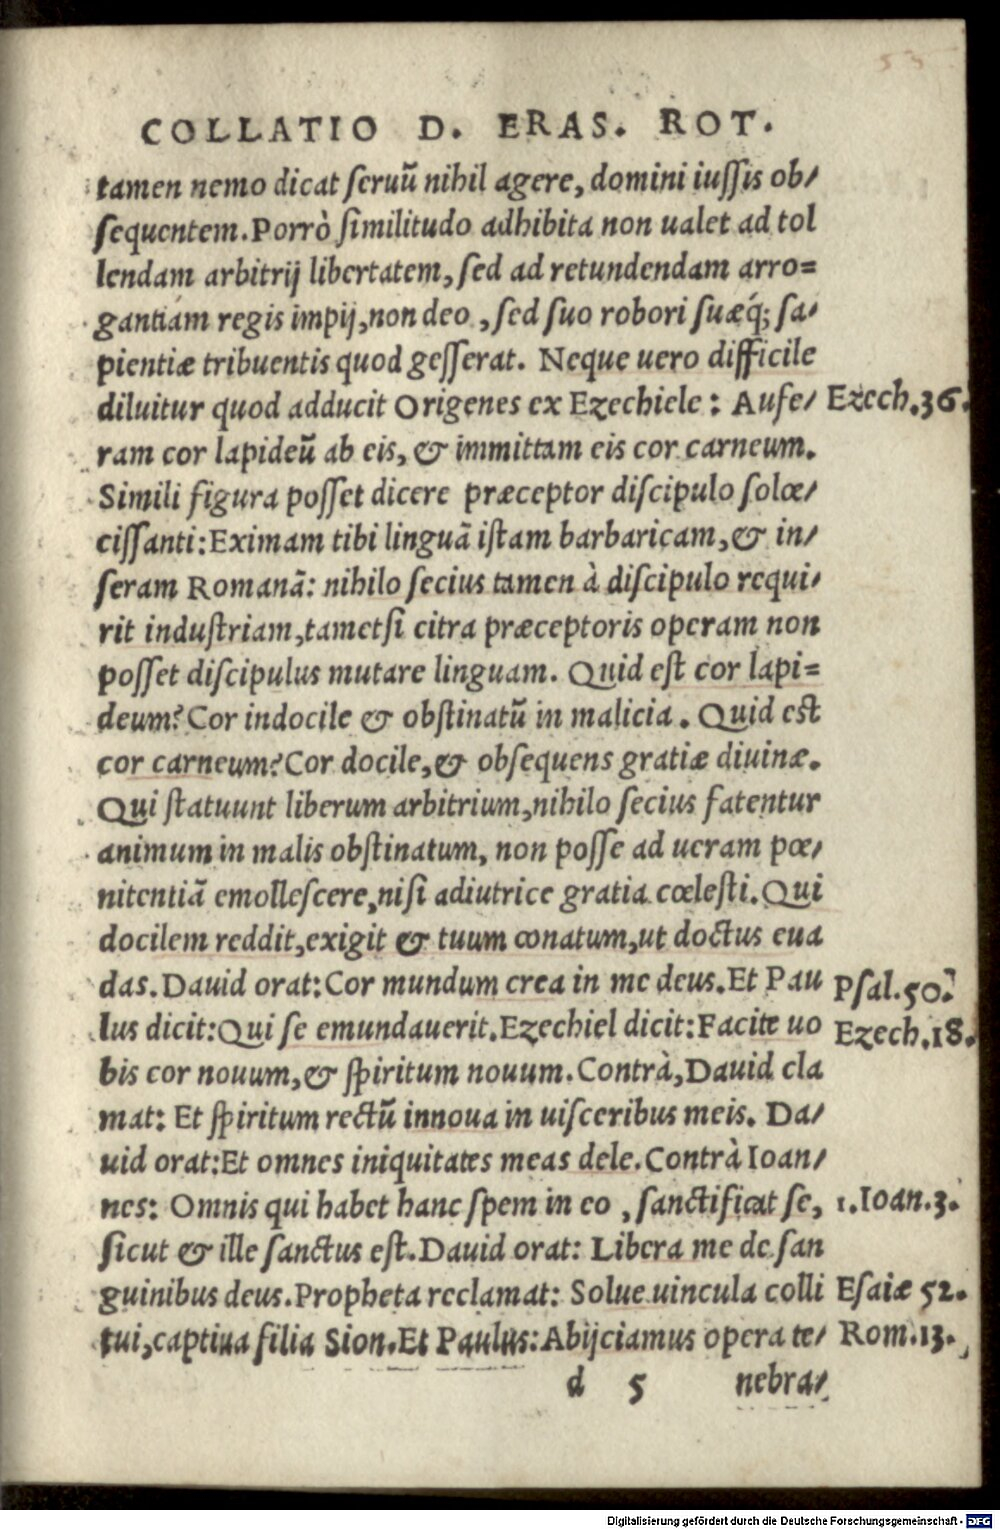 53
COLLATIO D. ERAS. ROT.
tamen nemo dicat ſeruū nihil agere, domini iuſſis ob/
ſequentem. Porrò ſimilitudo adhibita non ualet ad tol
lendam arbitrij libertatem, ſed ad retundendam arro=
gantiam regis impij, non deo, ſed ſuo robori ſuæq́; ſa/
pientiæ tribuentis quod geſſerat. Neque uero difficile
diluitur quod adducit Origenes ex Ezechiele: Aufe/ Ezech.36.
ram cor lapideū ab eis, & immittam eis cor carneum.
Simili figura poſſet dicere præceptor diſcipulo ſolœ/
ciſſanti: Eximam tibi linguā iſtam barbaricam, & in/
ſeram Romanā: nihilo ſecius tamen à diſcipulo requi/
rit induſtriam, tametſi citra præceptoris operam non
poſſet diſcipulus mutare linguam. Quid eſt cor lapi=
deum? Cor indocile & obſtinatū in malicia. Quid eſt
cor carneum? Cor docile, & obſequens gratiæ diuinæ.
Qui ſtatuunt liberum arbitrium, nihilo ſecius fatentur
animum in malis obſtinatum, non poſſe ad ueram pœ/
nitentiā emolleſcere, niſi adiutrice gratia cœleſti. Qui
docilem reddit, exigit & tuum conatum, ut doctus eua
das. Dauid orat: Cor mundum crea in me deus. Et Pau Pſal.50.
lus dicit: Qui ſe emundauerit. Ezechiel dicit: Facite uo Ezech.18.
bis cor nouum, & ſpiritum nouum. Contrà, Dauid cla
mat: Et ſpiritum rectū innoua in uiſceribus meis. Da/
uid orat: Et omnes iniquitates meas dele. Contrà Ioan/
nes: Omnis qui habet hanc ſpem in eo, ſanctificat ſe, 1.Ioan.3.
ſicut & ille ſanctus eſt. Dauid orat: Libera me de ſan
guinibus deus. Propheta reclamat: Solue uincula colli Eſaiæ 52.
tui, captiua filia Sion. Et Paulus: Abijciamus opera te/ Rom.13.
d 5 nebra/
Digitalisierung gefördert durch die Deutsche Forschungsgemeinschaft - DFG